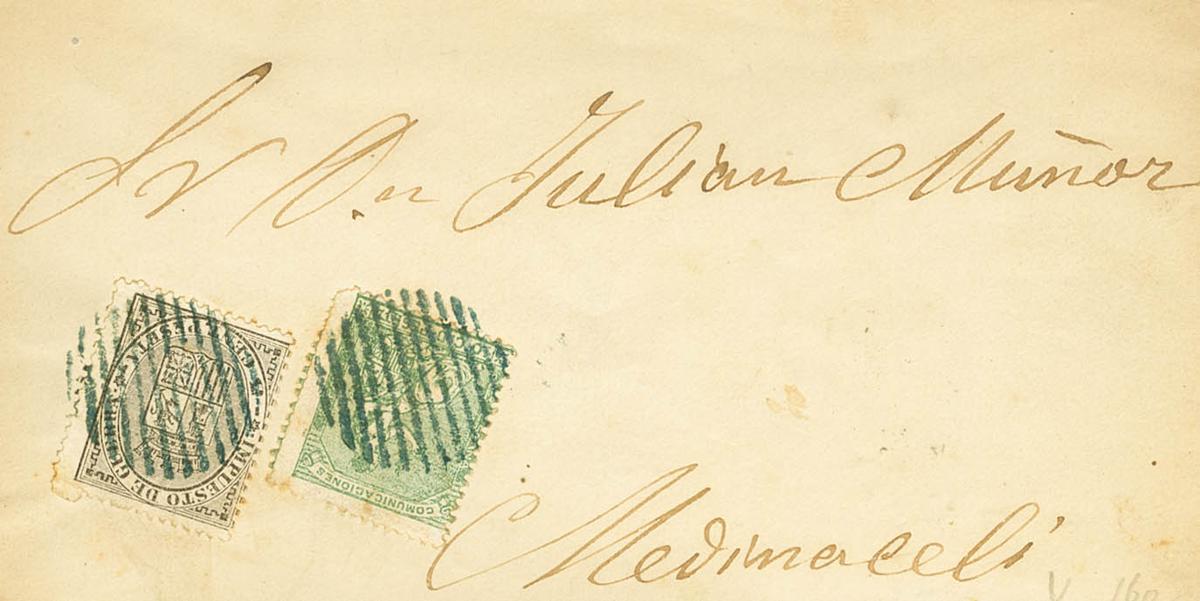 Sr Dn Julian Muñoz
5 CENT PESETA
IMPUESTO DE GUERRA
COMUNICACIONES
Medinaceli
V 160